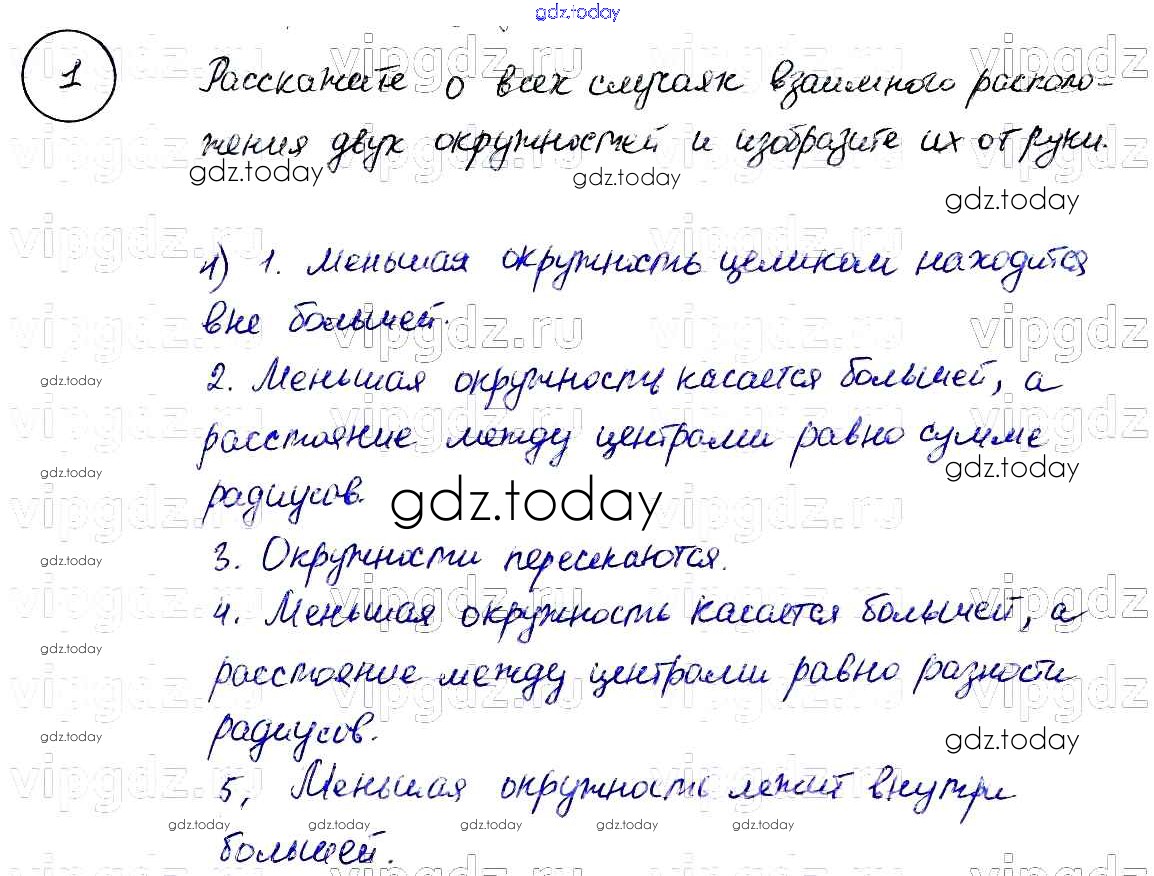 gdz.today
1 Расскажите о всех случаях взаимного располо-
жения двух окружностей и изобразите их от руки.
gdz.today gdz.today gdz.today
vipgdz.ru
1) 1. Меньшая окружность целиком находится
вне большей.
vipgdz.ru vipgdz.ru vipgdz.ru
2. Меньшая окружность касается большей, а
gdz.today
расстояние между центрами равно сумме
gdz.today gdz.today
радиусов. gdz.today
3. Окружности пересекаются.
gdz.today
4. Меньшая окружность касается большей, а
gdz.today
расстояние между центрами равно разности
радиусов.
gdz.today gdz.today
5. Меньшая окружность лежит внутри
gdz.today gdz.today gdz.today gdz.today gdz.today
большей.